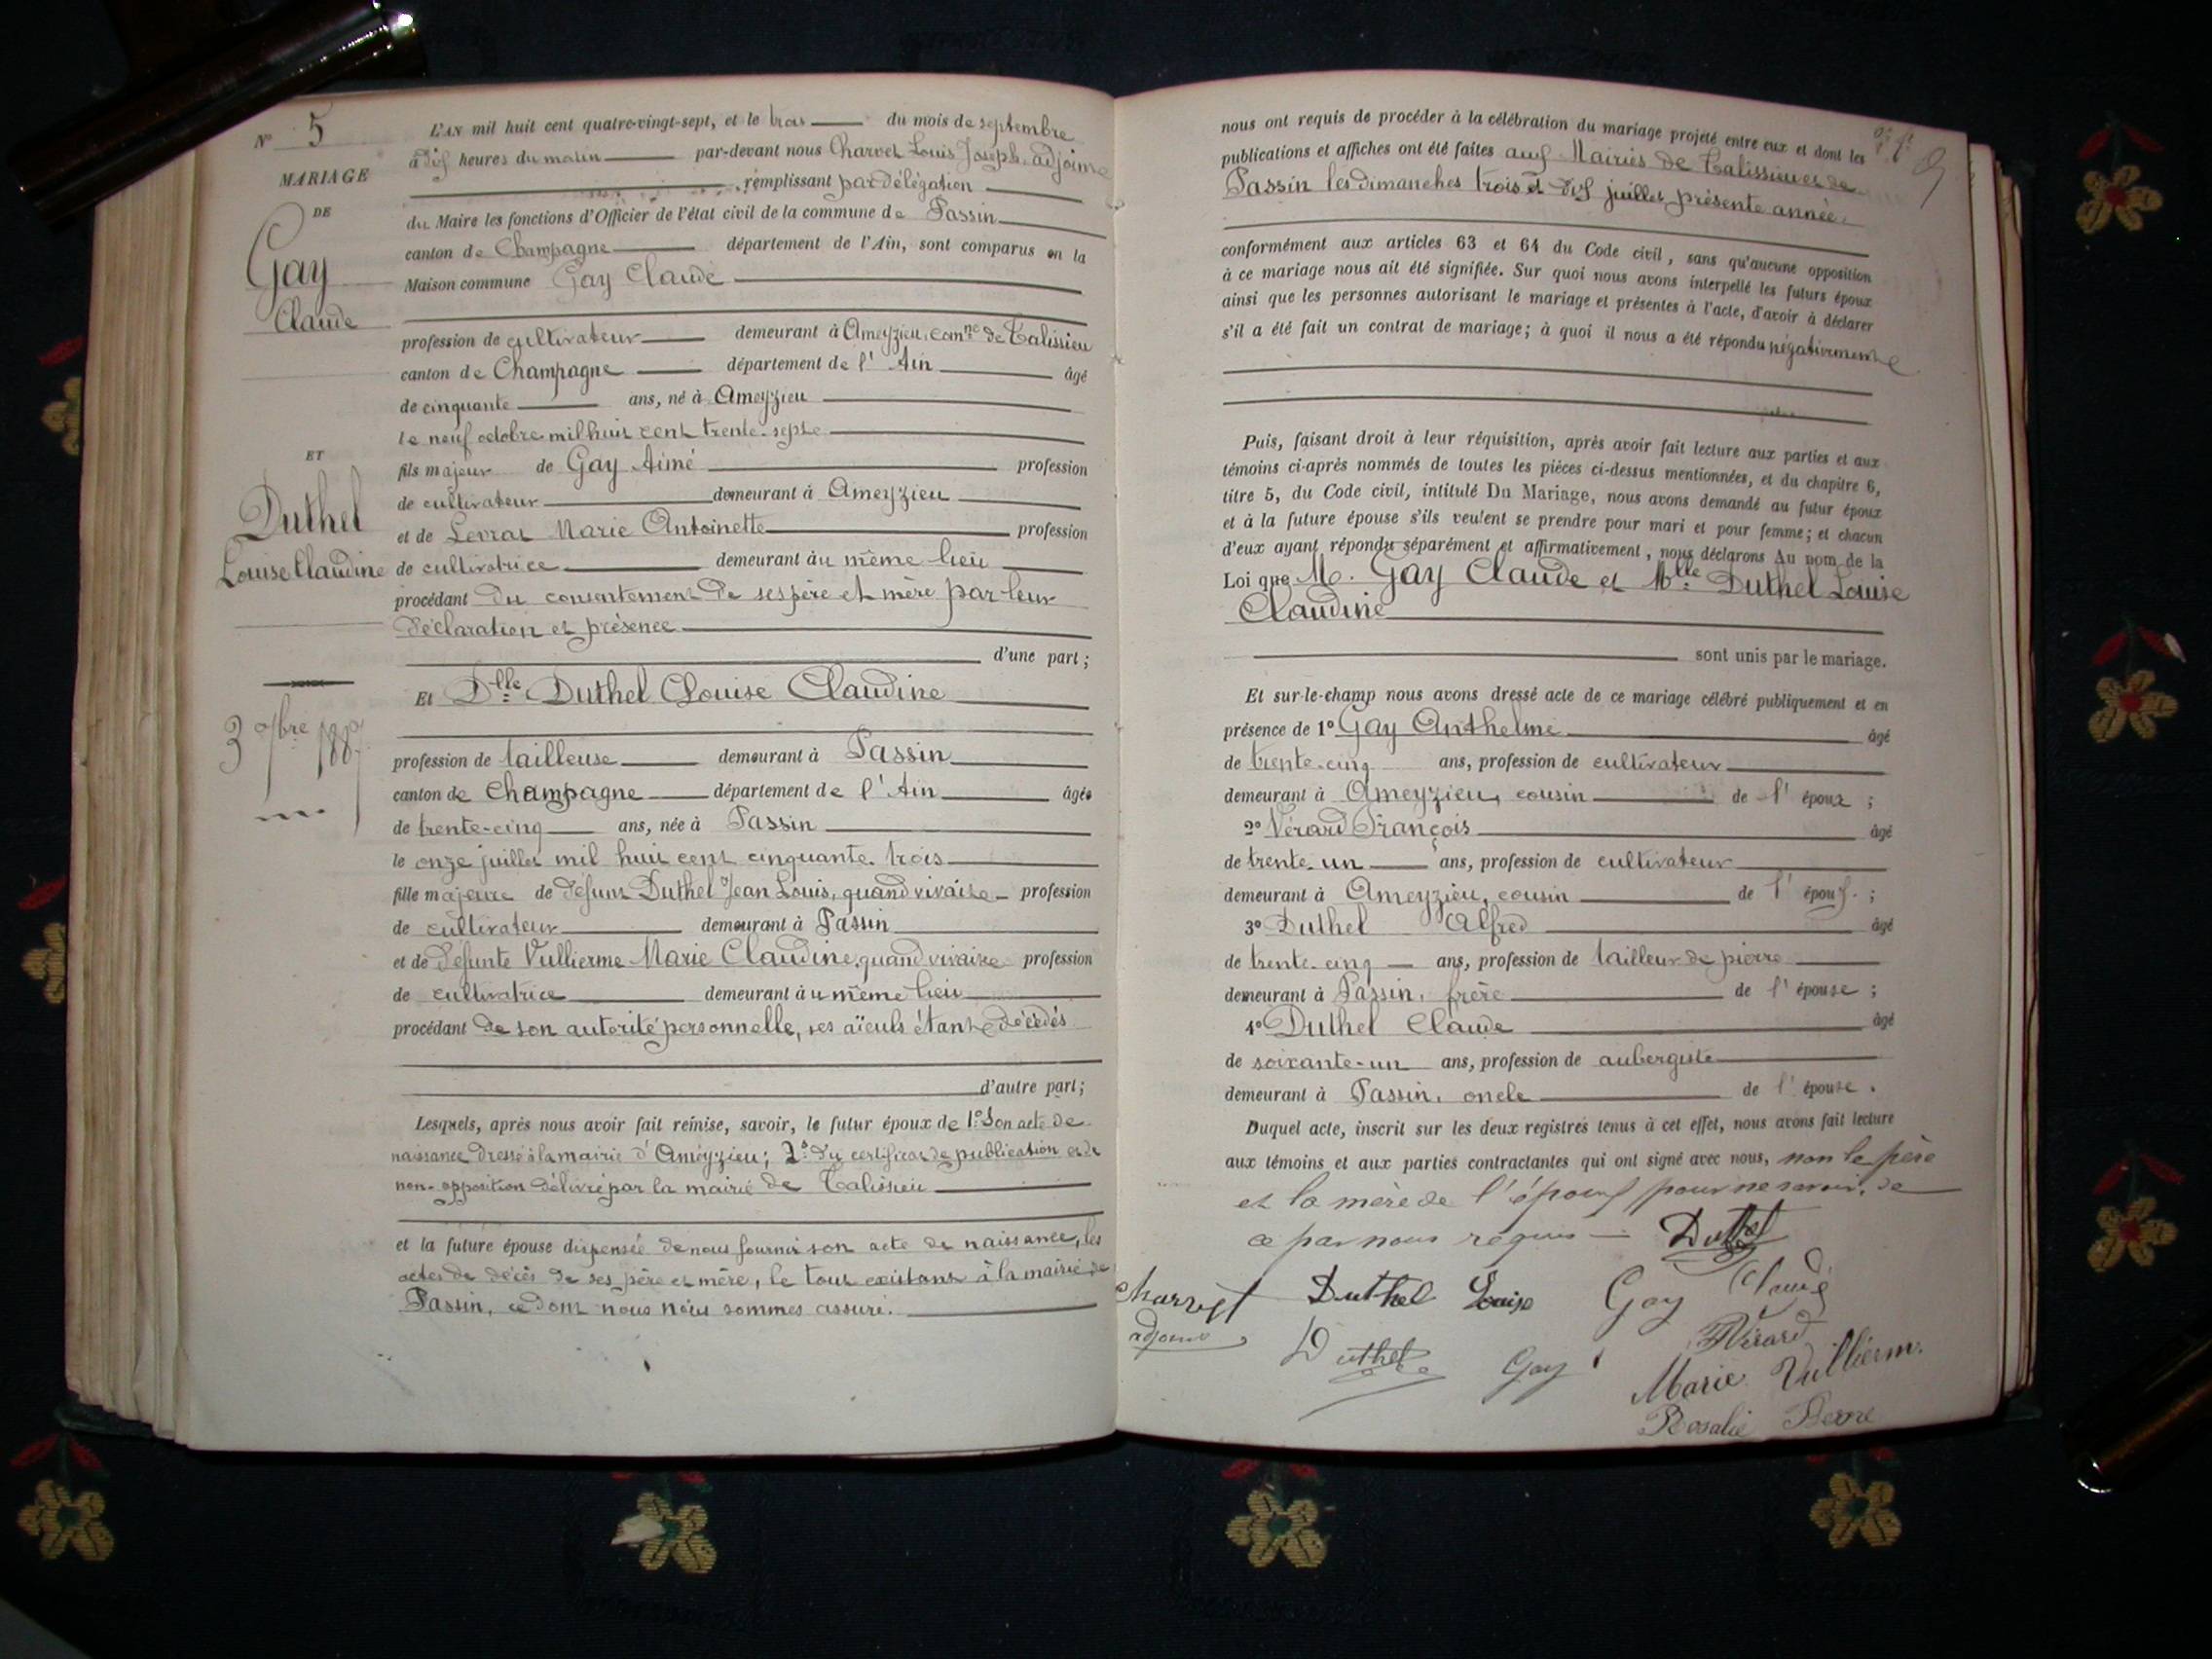 N° 5
MARIAGE
DE
Gay
Claude
ET
Duthel
Louise Claudine
3 7bre 1887
L'AN mil huit cent quatre-vingt-sept, et le trois du mois de septembre
à dix heures du matin par-devant nous Charvet Louis Joseph, adjoint
remplissant par délégation
du Maire les fonctions d'Officier de l'état civil de la commune de Passin
canton de Champagne département de l'Ain, sont comparus en la
Maison commune Gay Claude
profession de cultivateur demeurant à Ameyzieu, comne de Talissieu
canton de Champagne département de l'Ain âgé
de cinquante ans, né à Ameyzieu
le neuf octobre mil huit cent trente-sept
fils majeur de Gay Aimé profession
de cultivateur demeurant à Ameyzieu
et de Levrat Marie Antoinette profession
de cultivatrice demeurant àu même lieu
procédant du consentement de ses père et mère par leur
déclaration et présence
d'une part ;
Et Dlle Duthel Louise Claudine
profession de tailleuse demeurant à Passin
canton de Champagne département de l'Ain âgée
de trente-cinq ans, née à Passin
le onze juillet mil huit cent cinquante-trois
fille majeure de défunt Duthel Jean Louis, quand vivait profession
de cultivateur demeurant à Passin
et de défunte Vullierme Marie Claudine, quand vivait profession
de cultivatrice demeurant àu même lieu
procédant de son autorité personnelle, ses aïeuls étant décédés
d'autre part ;
Lesquels, après nous avoir fait remise, savoir, le futur époux de 1° Son acte de
naissance dressé à la mairie d'Ameyzieu ; 2° du certificat de publication et de
non-opposition délivré par la mairie de Talissieu
et la future épouse dispensée de nous fournir son acte de naissance, les
actes de décès de ses père et mère, le tout existant à la mairie de
Passin, ce dont nous nous sommes assuré.
nous ont requis de procéder à la célébration du mariage projeté entre eux et dont les
publications et affiches ont été faites aux Mairies de Talissieu et de
Passin les dimanches trois et dix juillet présente année.
conformément aux articles 63 et 64 du Code civil, sans qu'aucune opposition
à ce mariage nous ait été signifiée. Sur quoi nous avons interpellé les futurs époux
ainsi que les personnes autorisant le mariage et présentes à l'acte, d'avoir à déclarer
s'il a été fait un contrat de mariage ; à quoi il nous a été répondu négativement
Puis, faisant droit à leur réquisition, après avoir fait lecture aux parties et aux
témoins ci-après nommés de toutes les pièces ci-dessus mentionnées, et du chapitre 6,
titre 5, du Code civil, intitulé Du Mariage, nous avons demandé au futur époux
et à la future épouse s'ils veulent se prendre pour mari et pour femme ; et chacun
d'eux ayant répondu séparément et affirmativement, nous déclarons Au nom de la
Loi que M. Gay Claude et Mlle Duthel Louise
Claudine
sont unis par le mariage.
Et sur-le-champ nous avons dressé acte de ce mariage célébré publiquement et en
présence de 1° Gay Anthelme âgé
de trente-cinq ans, profession de cultivateur
demeurant à Ameyzieu, cousin de l'époux ;
2° Vérard François âgé
de trente-un ans, profession de cultivateur
demeurant à Ameyzieu, cousin de l'époux ;
3° Duthel Alfred âgé
de trente-cinq ans, profession de tailleur de pierre
demeurant à Passin, frère de l'épouse ;
4° Duthel Claude âgé
de soixante-un ans, profession de aubergiste
demeurant à Passin, oncle de l'épouse.
Duquel acte, inscrit sur les deux registres tenus à cet effet, nous avons fait lecture
aux témoins et aux parties contractantes qui ont signé avec nous, non le père
et la mère de l'époux pour ne savoir, de
ce par nous requis Duthel
Charvet Duthel Louise Gay Claude
adjoint Duthel Gay Vérard
Marie Vullierm.
Rosalie